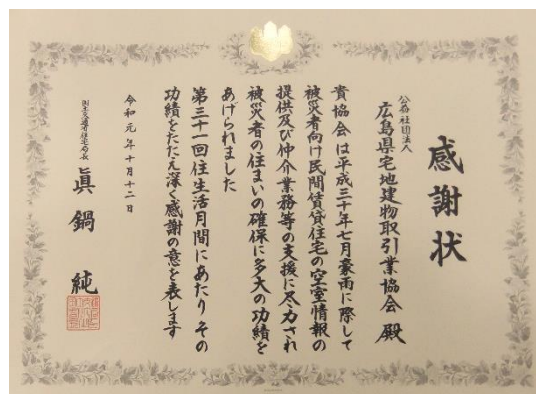 感謝状
公益社団法人
広島県宅地建物取引業協会 殿
貴協会は平成三十年七月豪雨に際して
被災者向け民間賃貸住宅の空室情報の
提供及び仲介業務等の支援に尽力され
被災者の住まいの確保に多大の功績を
あげられました
第三十一回住生活月間にあたり その
功績をたたえ深く感謝の意を表します
令和元年十月十二日
国土交通省住宅局長 眞鍋 純